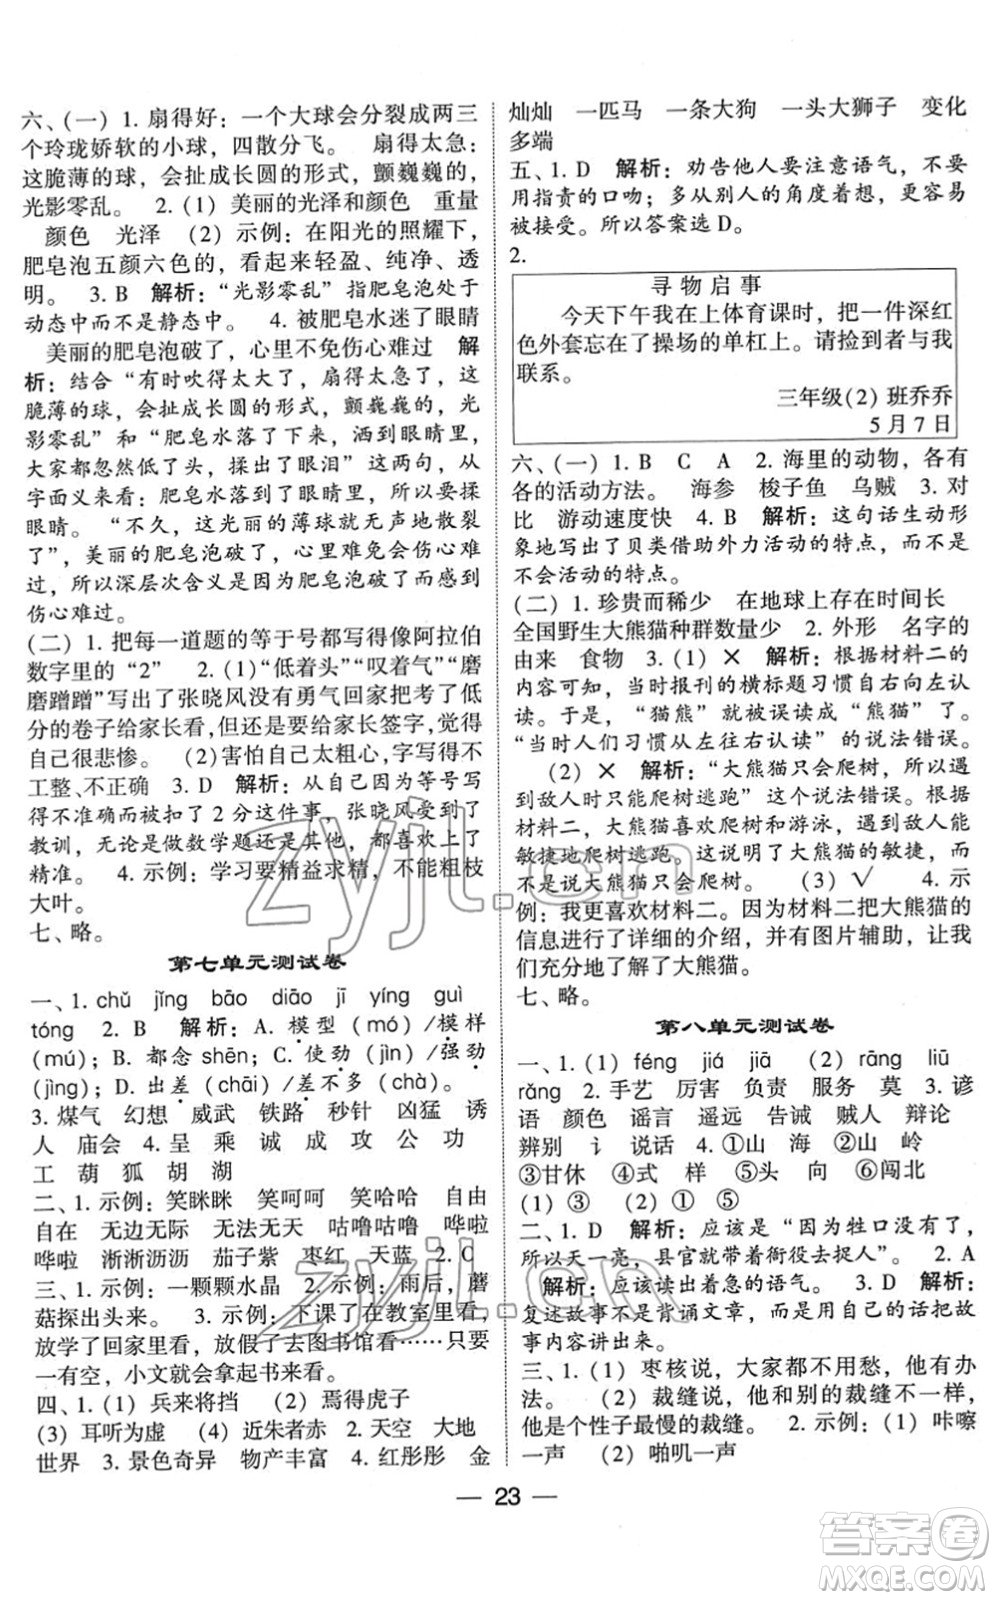 六、(一) 1. 扇得好：一个大球会分裂成两三
个玲珑娇软的小球，四散分飞。 扇得太急：
这脆薄的球，会扯成长圆的形式，颤巍巍的，
光影零乱。 2. (1) 美丽的光泽和颜色 重量
颜色 光泽 (2) 示例：在阳光的照耀下，
肥皂泡五颜六色的，看起来轻盈、纯净、透
明。 3. B 解析：“光影零乱”指肥皂泡处于
动态中而不是静态中。 4. 被肥皂水迷了眼睛
美丽的肥皂泡破了，心里不免伤心难过 解
析：结合“有时吹得太大了，扇得太急了，这
脆薄的球，会扯成长圆的形式，颤巍巍的，光
影零乱”和“肥皂水落了下来，洒到眼睛里，
大家都忽然低了头，揉出了眼泪”这两句，从
字面意义来看：肥皂水落了下来，使孩子揉
眼睛。 “不久，这光丽的薄球就无声地散裂
了”，美丽的肥皂泡破了，心里难免会伤心难
过，所以深层次含义是因为肥皂泡破了而感到
伤心难过。
(二) 1. 把每一道题的等于号都写得像阿拉伯
数字里的“2” 2. (1)“低着头”“叹着气”“磨
磨蹭蹭”写出了张晓风没有勇气回家把考了低
分的卷子给家长看，但还是要给家长签字，觉得
自己很悲惨。 (2) 害怕自己太粗心，字写得不
工整、不正确 3. D 解析：从自己因为等号写
得不准确而被扣了2分这件事，张晓风受到了
教训，无论是做数学题还是其他，都喜欢上了
精准。 4. 示例：学习要精益求精，不能粗枝
大叶。
七、略。
第七单元测试卷
一、1. chǔ jǐng bāo diāo jī yíng guì
tóng 2. B 解析：A. 模型 (mó) /模样
(mú)；B. 都念 shēn；C. 使劲 (jìn) /强劲
(jìng)；D. 出差 (chāi) /差不多 (chà)。
3. 煤气 幻想 威武 铁路 秒针 凶猛 诱
人 庙会 4. 呈 乘 诚 成 攻 公 功
工 葫 狐 胡 湖
二、1. 示例：笑眯眯 笑呵呵 笑哈哈 自由
自在 无边无际 无法无天 咕噜咕噜 哗啦
哗啦 淅淅沥沥 茄子紫 枣红 天蓝 2. C
三、1. 示例：一颗颗水晶 2. 示例：雨后，蘑
菇探出头来。 3. 示例：下课了在教室里看，
放学了回家里看，放假了去图书馆看……只要
一有空，小文就会拿起书来看。
四、1. (1) 兵来将挡 (2) 焉得虎子
(3) 耳听为虚 (4) 近朱者赤 2. 天空 大地
世界 3. 景色奇异 物产丰富 4. 红彤彤 金
灿灿 一匹马 一条大狗 一头大狮子 变化
多端
五、1. D 解析：劝告他人要注意语气，不要
用指责的口吻；多从别人的角度着想，更容
易被接受。所以答案选 D。
2.
寻物启事
今天下午我在上体育课时，把一件深红
色外套忘在了操场的单杠上。请捡到者与我
联系。
三年级(2) 班乔乔
5月7日
六、(一) 1. B C A 2. 海里的动物，各有
各的活动方法。 海参 梭子鱼 乌贼 3. 对
比 游动速度快 4. B 解析：这句话生动形
象地写出了贝类借助外力活动的特点，而不是
不会活动的特点。
(二) 1. 珍贵而稀少 在地球上存在时间长
全国野生大熊猫种群数量少 2. 外形 名字的
由来 食物 3. (1) ✕ 解析：根据材料二的
内容可知，当时报刊的横标题习惯自右向左认
读。于是，“猫熊”就被误读成“熊猫”了。
“当时人们习惯从左往右认读”的说法错误。
(2) ✕ 解析：“大熊猫只会爬树，所以遇
到敌人时只能爬树逃跑”这个说法错误。根据
材料二，大熊猫喜欢爬树和游泳，遇到敌人能
敏捷地爬树逃跑。这说明了大熊猫的敏捷，而
不是说大熊猫只会爬树。 (3) √ 4. 示
例：我更喜欢材料二。因为材料二把大熊猫的
信息进行了详细的介绍，并有图片辅助，让我
们充分地了解了大熊猫。
七、略。
第八单元测试卷
一、1. (1) féng jiá jiā (2) rāng liū
rǎng 2. 手艺 厉害 负责 服务 莫 3. 谚
语 颜色 谣言 遥远 告诫 贼人 辩论
辨别 讠 说话 4. ①山 海 ②山 岭
③甘休 ④式 样 ⑤头 向 ⑥闯北
(1) ③ (2) ① ⑤
二、1. D 解析：应该是“因为牲口没有了，
所以天一亮，县官就带着衙役去捉人”。 2. A
解析：应该读出着急的语气。 3. D 解析：
复述故事不是背诵文章，而是用自己的话把故
事内容讲出来。
三、1. (1) 枣核说，大家都不用愁，他有办
法。 (2) 裁缝说，他和别的裁缝不一样，
他是个性子最慢的裁缝。 2. 示例：(1) 咔嚓
一声 (2) 啪叽一声
— 23 —
zyjl.cn
zyjl.cn
答案圈
MXQE.COM